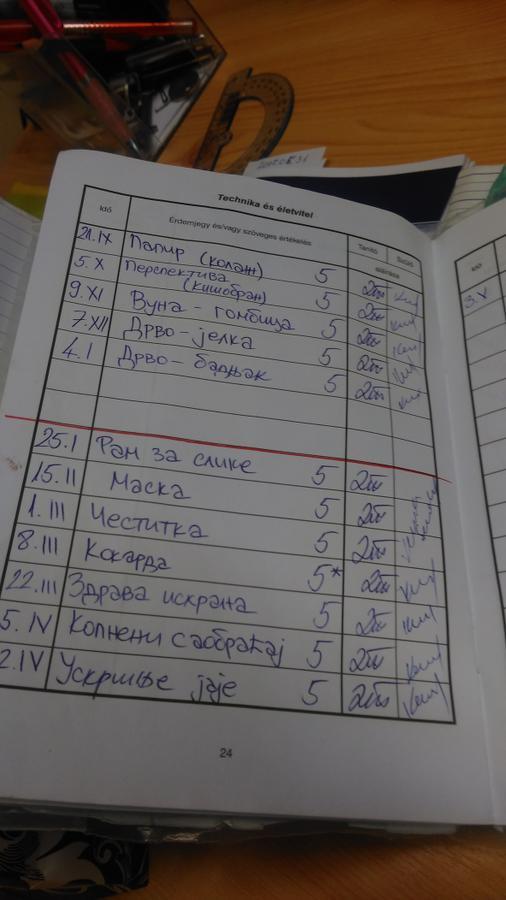 20120831
Technika és életvitel
Idő Érdemjegy és/vagy szöveges értékelés Tanító Szülő
aláírása
21.IX Папир (колаж) 5
5.X Перспектива 5
(кишобран)
9.XI Вуна - гомбица 5
7.XII Дрво - јелка 5
4.I Дрво - бадњак 5
25.I Рам за слике 5
15.II Маска 5
1.III Честитка 5
8.III Кокарда 5*
22.III Здрава исхрана 5
5.IV Копнени саобраћај 5
2.IV Ускршње јаје 5
24
Idő
3.X